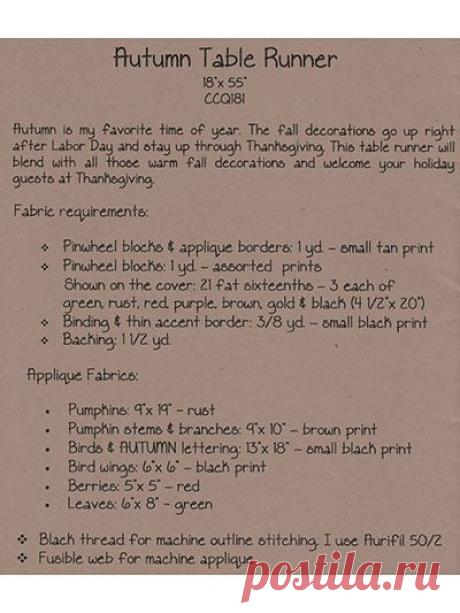 Autumn Table Runner
18"x 55"
CCQ181
Autumn is my favorite time of year. The fall decorations go up right
after Labor Day and stay up through Thanksgiving. This table runner will
blend with all those warm fall decorations and welcome your holiday
guests at Thanksgiving.
Fabric requirements:
❖ Pinwheel blocks & applique borders: 1 yd. – small tan print
❖ Pinwheel blocks: 1 yd. – assorted prints
Shown on the cover: 21 fat sixteenths – 3 each of
green, rust, red, purple, brown, gold & black (4 1/2"x 20")
❖ Binding & thin accent border: 3/8 yd. – small black print
❖ Backing: 1 1/2 yd.
Applique Fabrics:
• Pumpkins: 9"x 19" – rust
• Pumpkin stems & branches: 9"x 10" – brown print
• Birds & AUTUMN lettering: 13"x 18" – small black print
• Bird wings: 6"x 6" – black print
• Berries: 5"x 5" – red
• Leaves: 6"x 8" – green
❖ Black thread for machine outline stitching. I use Aurifil 50/2
❖ Fusible web for machine applique
postila.ru